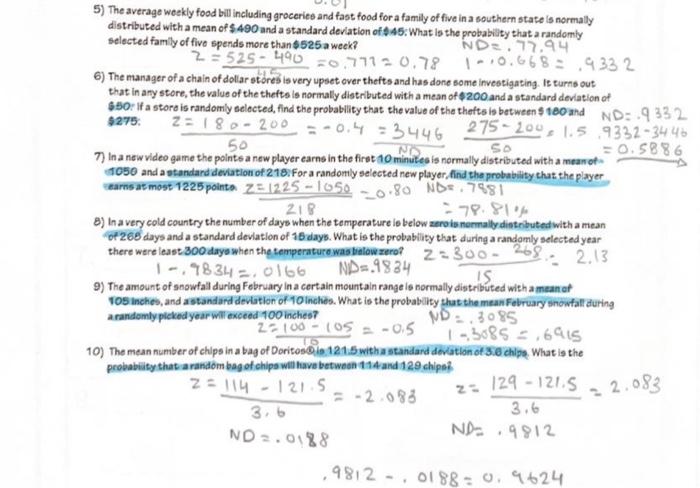 5) The average weekly food bill including groceries and fast food for a family of five in a southern state is normally
distributed with a mean of $490 and a standard deviation of $45. What is the probability that a randomly
selected family of five spends more than $525 a week?
ND= .77.94
Z = 525 - 490 = 0.777 = 0.78 1 - .0.668 = .9332
45
6) The manager of a chain of dollar stores is very upset over thefts and has done some investigating. It turns out
that in any store, the value of the thefts is normally distributed with a mean of $200 and a standard deviation of
$50. If a store is randomly selected, find the probability that the value of the thefts is between $180 and
$275.
ND= .9332
Z = 180 - 200 = -0.4 = 3446 275 - 200 = 1.5 .9332-3446
50 ND 50 = 0.5886
7) In a new video game the points a new player earns in the first 10 minutes is normally distributed with a mean of
1050 and a standard deviation of 218. For a randomly selected new player, find the probability that the player
earns at most 1225 points. Z = 1225 - 1050 = 0.80 ND= .7881
218 = 78.81%
8) In a very cold country the number of days when the temperature is below zero is normally distributed with a mean
of 268 days and a standard deviation of 15 days. What is the probability that during a randomly selected year
there were least 300 days when the temperature was below zero? Z = 300 - 268 = 2.13
1 - .9834 = .0166 ND= .9834 15
9) The amount of snowfall during February in a certain mountain range is normally distributed with a mean of
105 inches, and a standard deviation of 10 inches. What is the probability that the mean February snowfall during
a randomly picked year will exceed 100 inches? ND = .3085
Z = 100 - 105 = -0.5 1 - .3085 = .6915
10
10) The mean number of chips in a bag of Doritos® is 121.5 with a standard deviation of 3.6 chips. What is the
probability that a random bag of chips will have between 114 and 129 chips?
Z = 114 - 121.5 = -2.083 Z = 129 - 121.5 = 2.083
3.6 3.6
ND = .0188 ND= .9812
.9812 - .0188 = 0.9624